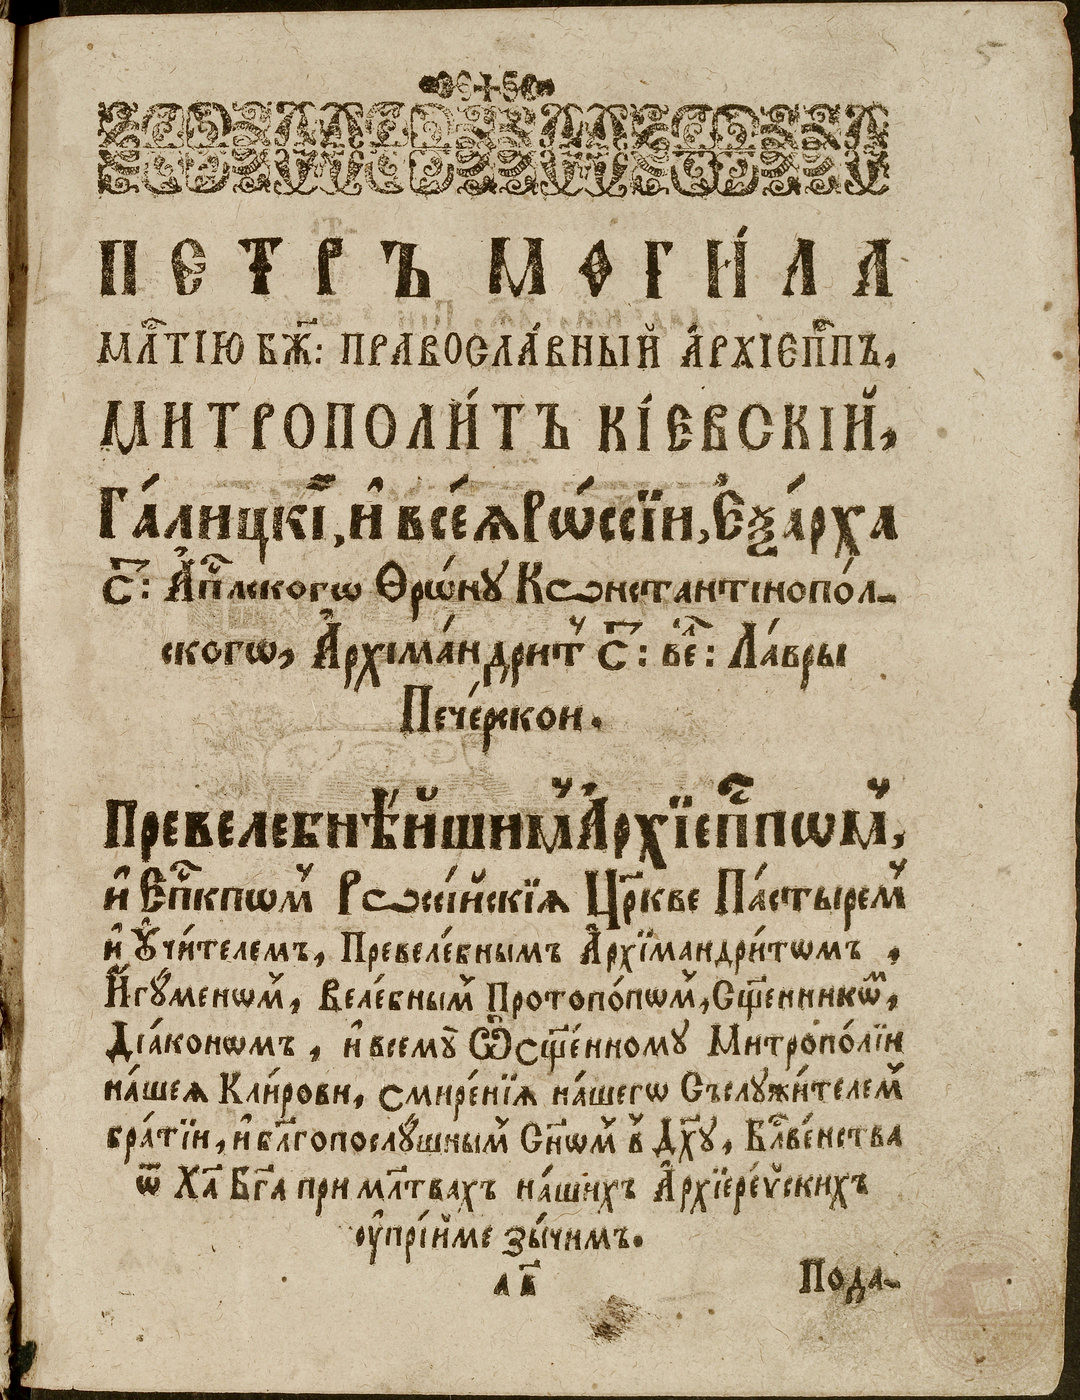 ПЕТРЪ МОГИ́ЛА
МЛ҃ТІЮ БЖ҃: ПРАВОСЛА́ВНЫЙ А́РХІЄП҃ПЪ,
МИТРОПОЛИ́ТЪ КІ́ЕВСКІЙ,
Га́лицкї, и҆ всеѐ́ѧ Рѡ́ссїи, Єѯа́рха
С҃: А҆п҃лскогѡ Ѳрѡ́нꙋ Кѡнстантінопо́л-
скогѡ, А҆рхіма́ндрит С҃: ве҃л: Ла́вры
Пече́рскои.
Превелебнѣ́йшим А҆рхїеп҃пѡм,
и҆ Єп҃кпѡм Рѡссі́йскїѧ Цр҃кве Па́стырем
и҆ Оу҆чи́телемъ, Превеле́бнымъ А҆рхїмандри́тѡмъ,
И҆гꙋ́менѡм, Веле́бным Протопо́пѡм, Сщ҃енникѡм,
Дїа́конѡмъ, и҆ всемꙋ̀ Ѡ҆сщ҃е́нномꙋ Митропо́лїи
на́шеѧ Кли́рови, смире́нїѧ на́шегѡ Съслꙋжи́телем
бра́тїи, и҆ бл҃гопослꙋ́шным Сн҃ѡм в Дх҃ꙋ, Бл҃ве́нства
ѿ Ха҃ Бг҃а при мл҃твахъ на́шихъ А҆рхїере́йскихъ
оу҆прі́йме зы́чимъ.
а в҃
Пода-
5